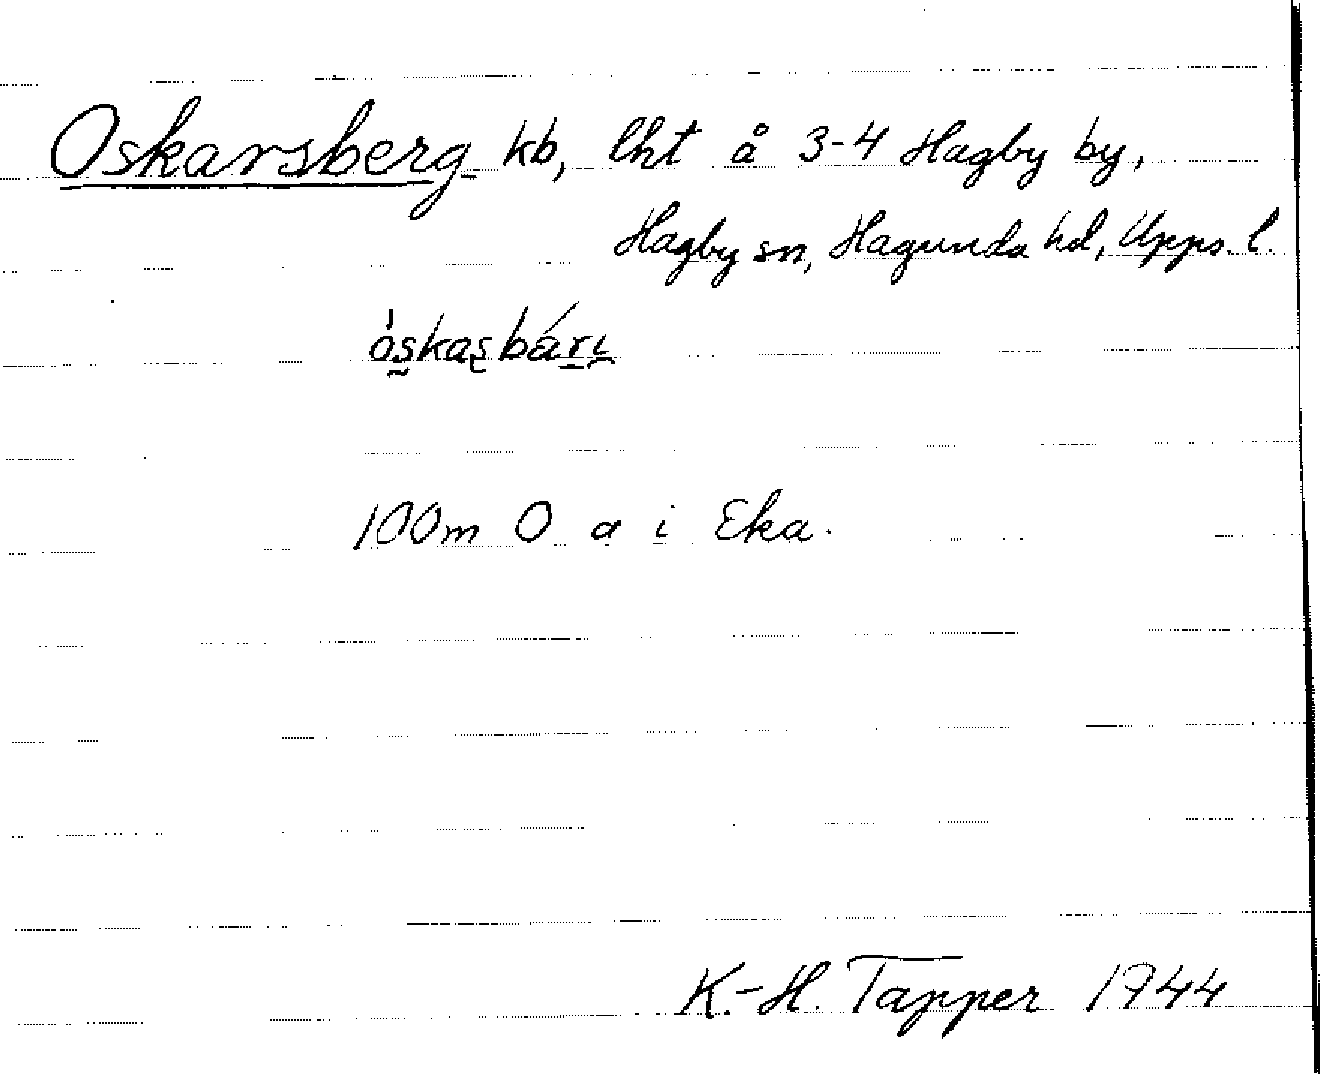 Oskarsberg kb, lht å 3-4 Hagby by,
Hagby sn, Hagunda hd, Upps. l.
òskasbárι
100m O a i Eka.
K.-H. Tapper 1944